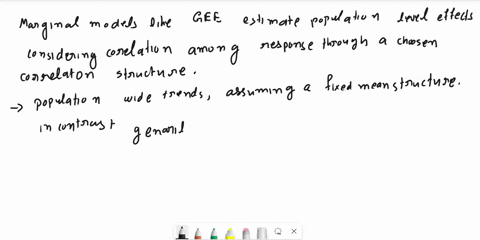 Marginal models like GEE estimate population level effects
considering corelation among response through a choosen
correlaton structure.
→ population wide trends, assuming a fixed mean structure.
in contrast genaril